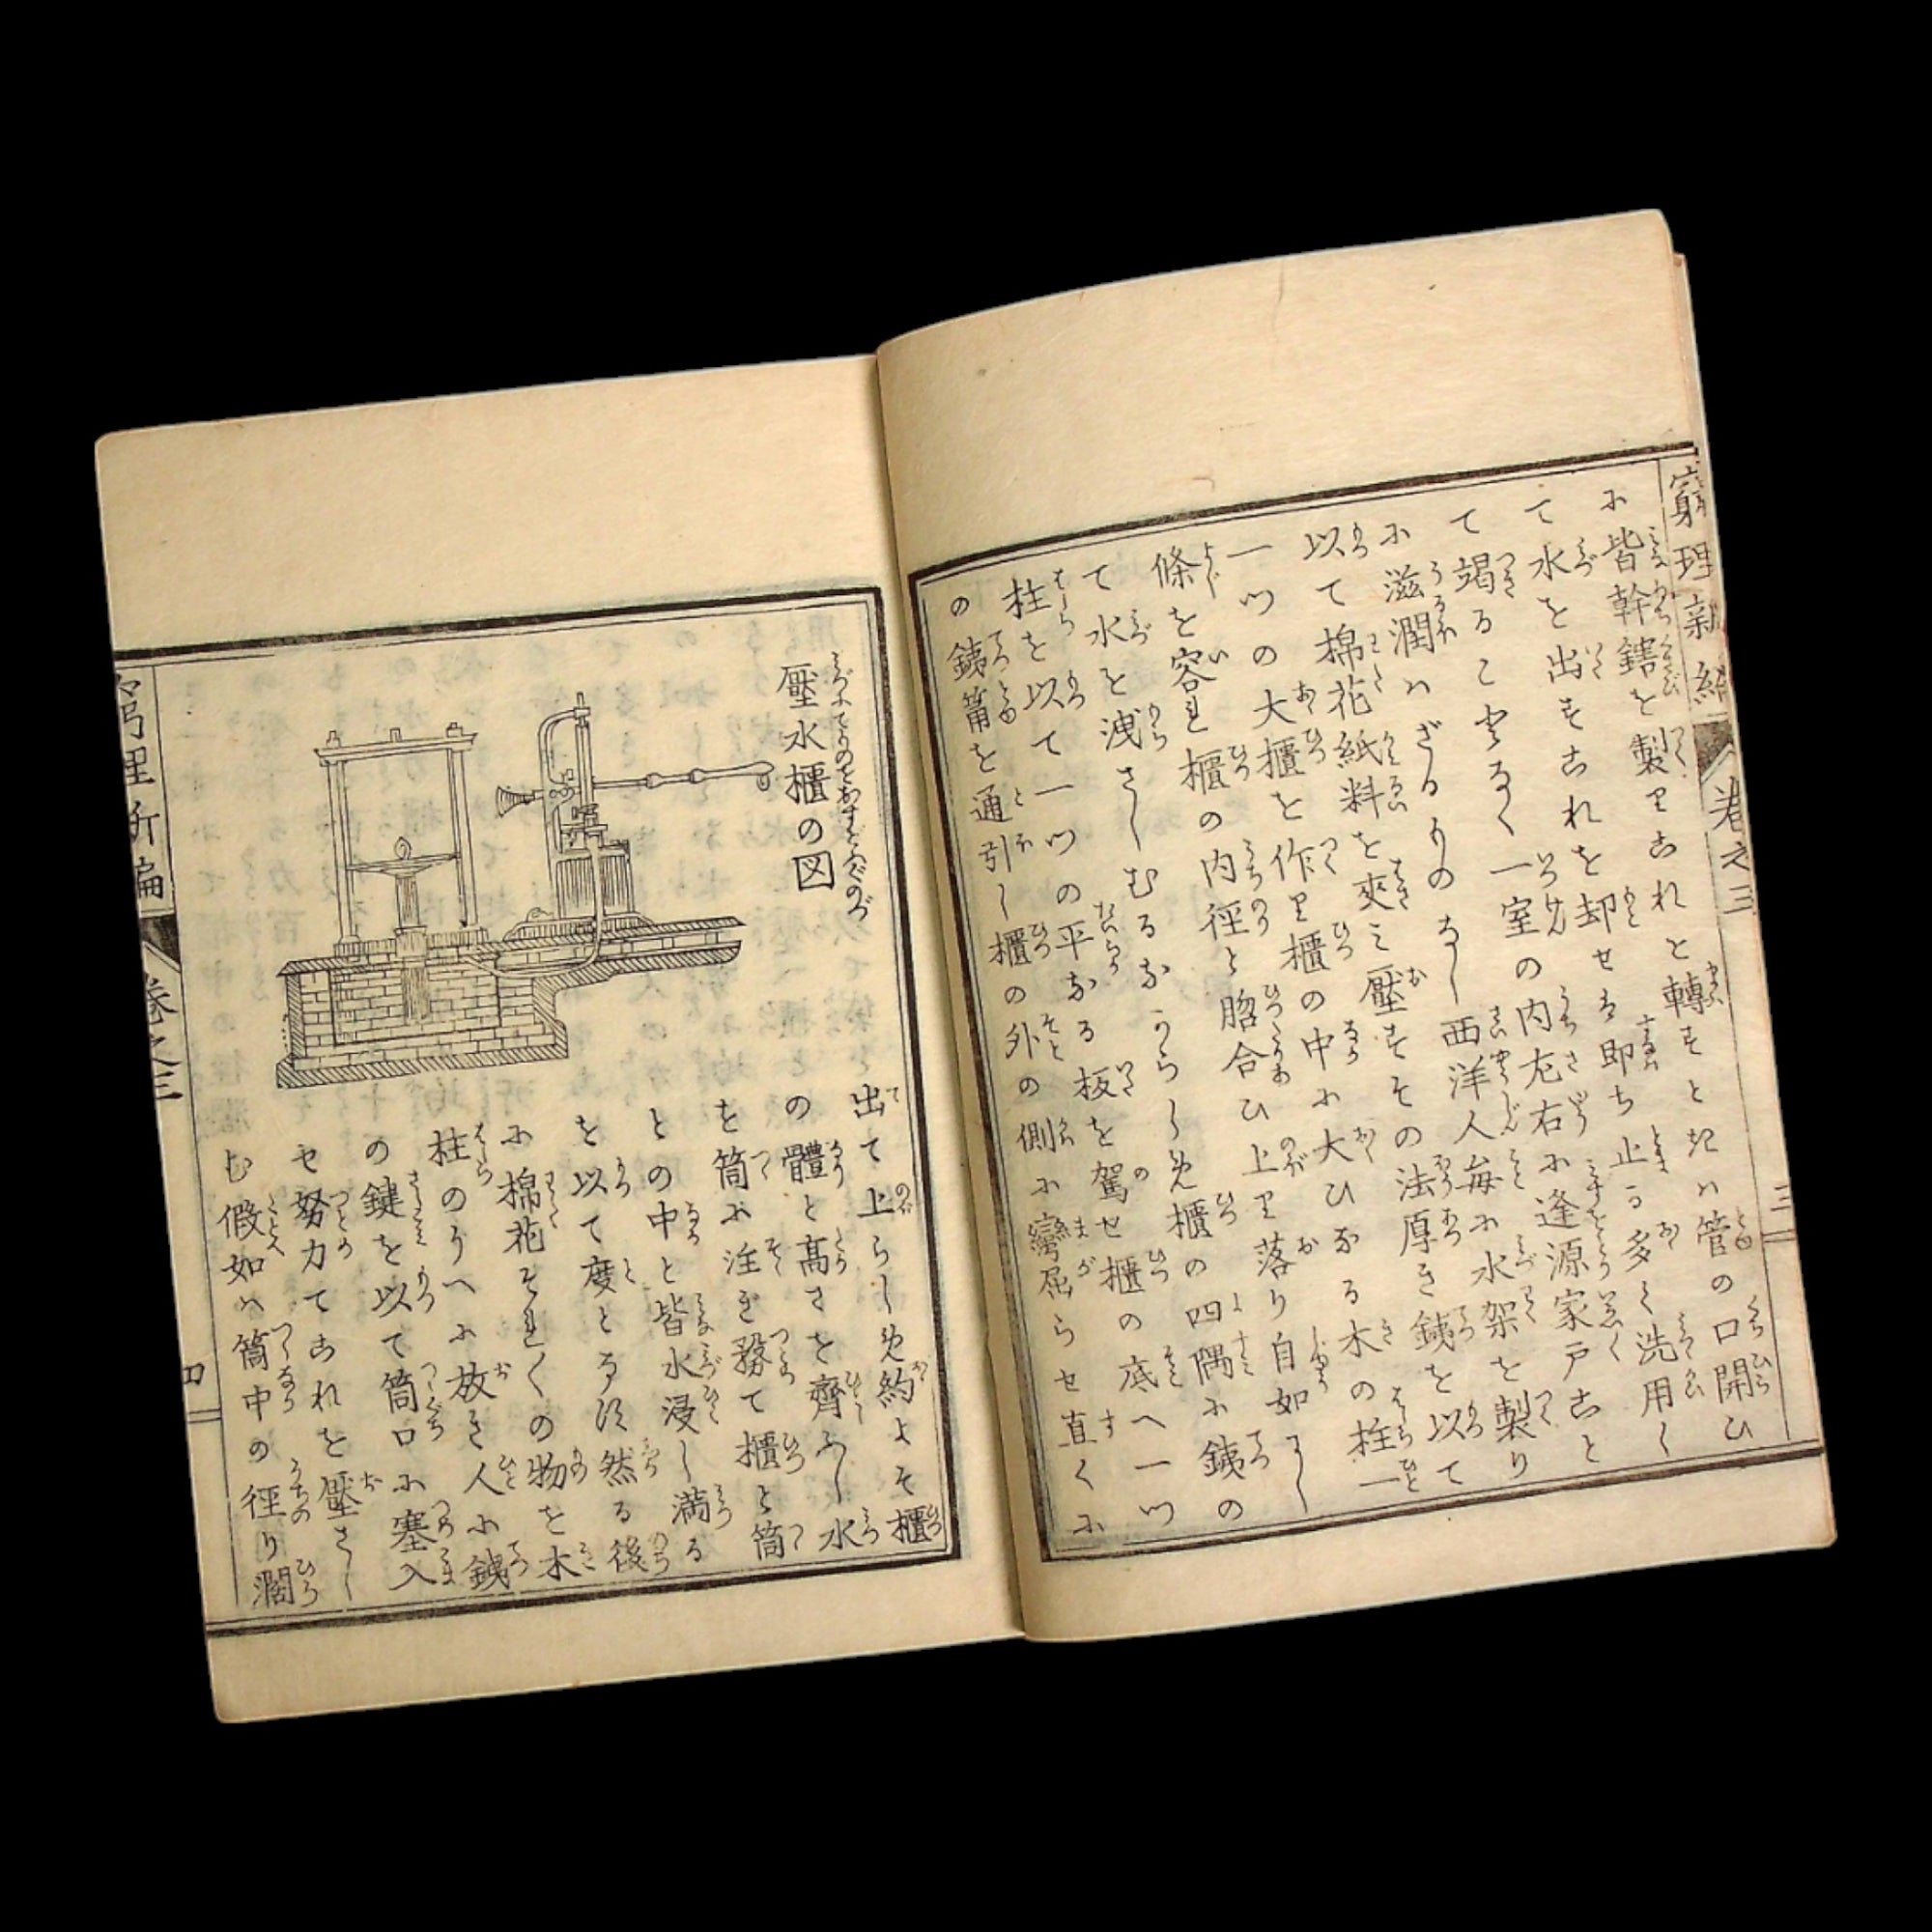 窮理新編 巻之三 三
に皆幹鎋を製りこれを轉すときハ管の口開ひ
て水を出すこれを却せば即ち止る多く洗用し
て竭ることなく一室の内左右に逢源家戸こと
に滋潤ハざるものなし西洋人毎に水架を製り
以て棉花紙料を夾み壓すその法厚き銕を以て
一ツの大櫃を作り櫃の中に大ひなる木の柱一
條を容れ櫃の内徑と脗合ひ上り落り自如にし
て水を洩さしむるなからしめ櫃の四隅に銕の
柱を以て一ツの平なる板を駕せ櫃の底へ一ツ
の銕筩を通引し櫃の外の側に彎屈らせ直くに
壓水櫃の図
出て上らしめ約よそ櫃
の體と高さを齊ふし水
を筒に注ぎ務て櫃と筒
との中と皆水浸し満る
を以て度とす然る後
に棉花それ〱の物を木
柱のうへに放き人に銕
の鍵を以て筒口に塞入
せ努力てこれを壓さし
む假如ハ筒中の徑り濶
窮理新編 巻之三 四